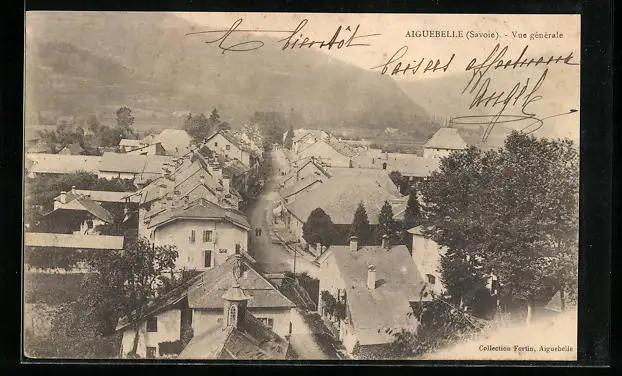 AIGUEBELLE (Savoie). - Vue générale
A bientôt
baisers affectueux
Collection Fortin, Aiguebelle